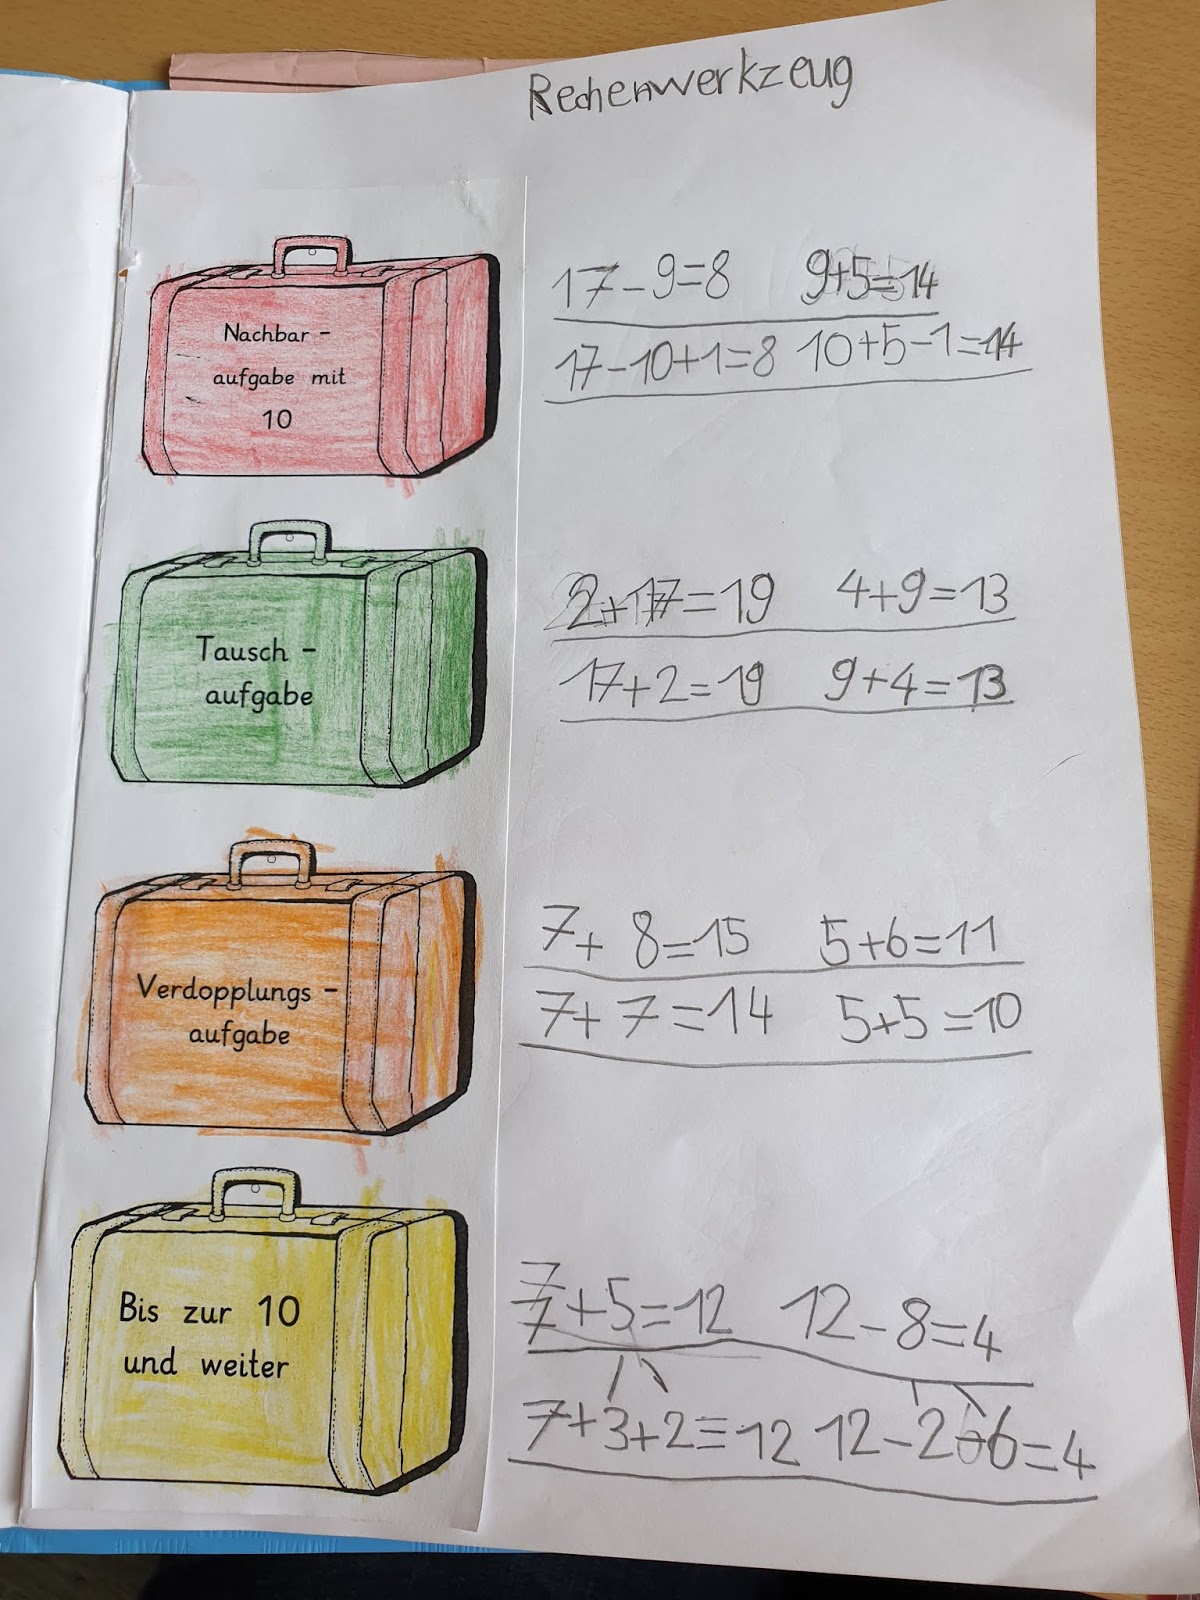 Rechenwerkzeug
Nachbar-
aufgabe mit
10
17-9=8 9+5=14
17-10+1=8 10+5-1=14
Tausch-
aufgabe
2+17=19 4+9=13
17+2=19 9+4=13
Verdopplungs-
aufgabe
7+ 8=15 5+6=11
7+7=14 5+5=10
Bis zur 10
und weiter
7
7+5=12 12-8=4
7+3+2=12 12-2-6=4